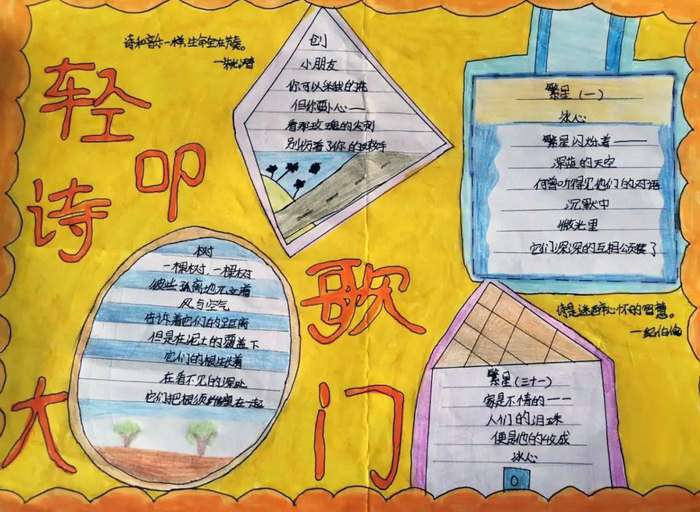 轻叩诗歌大门
诗和音乐一样,生命全在节奏。
创
小朋友
你可以采我的花
但你要小心——
看那玫瑰的尖刺
别伤着了你的
繁星(一)
冰心
繁星闪烁着——
深蓝的天空
何曾听得见他们的对语
沉默中
微光里
它们深深的互相颂赞了
树
一棵树,一棵树
彼此孤离地兀立着
风与空气
告诉着它们的距离
但是在泥土的覆盖下
它们的根生长着
在看不见的深处
它们把根须纠缠在一起
诗是迷醉心怀的智慧。
—纪伯伦
繁星(三十一)
家是不情的——
人们的泪珠
便是他的收成
冰心